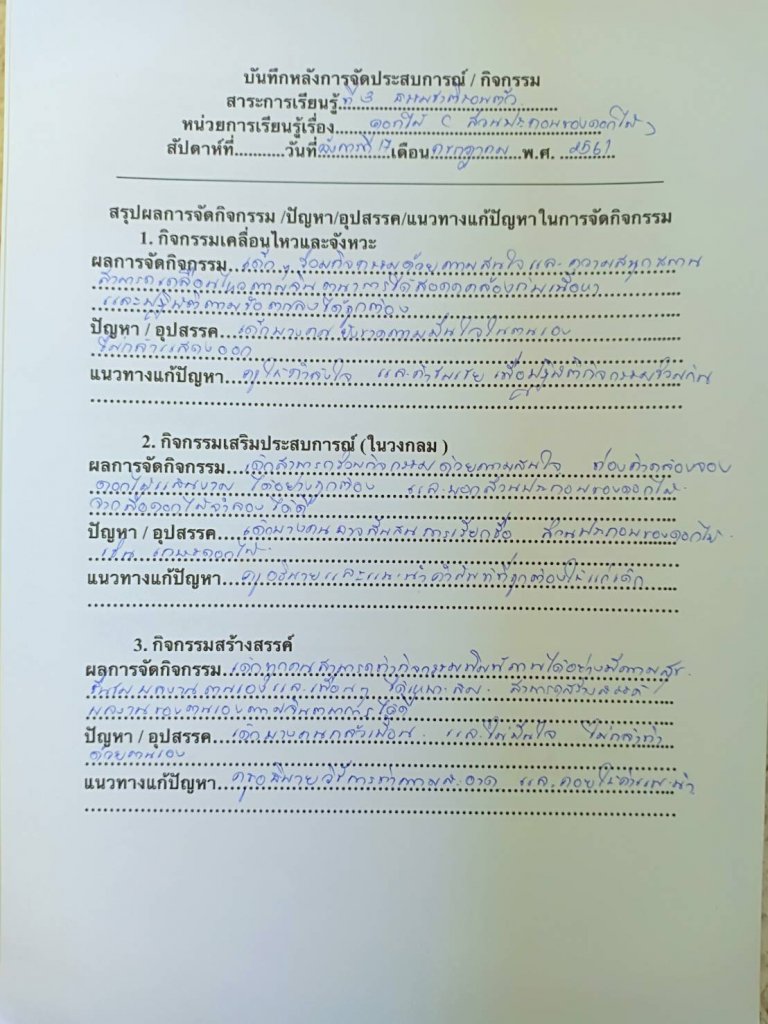 บันทึกหลังการจัดประสบการณ์ / กิจกรรม
สาระการเรียนรู้ที่ 3 ธรรมชาติรอบตัว
หน่วยการเรียนรู้เรื่อง ดอกไม้ ( ส่วนประกอบของดอกไม้ )
สัปดาห์ที่...........วันที่ อังคารที่ 17 เดือน กรกฎาคม พ.ศ. 2561
สรุปผลการจัดกิจกรรม /ปัญหา/อุปสรรค/แนวทางแก้ปัญหาในการจัดกิจกรรม
1. กิจกรรมเคลื่อนไหวและจังหวะ
ผลการจัดกิจกรรม เด็กๆ ร่วมกิจกรรมด้วยความสนใจและความสนุกสนาน
สามารถเคลื่อนไหวตามจินตนาการได้สอดคล้องกับเนื้อหา
และปฏิบัติตามข้อตกลงได้ถูกต้อง
ปัญหา / อุปสรรค เด็กบางคนยังขาดความมั่นใจในตนเอง
ไม่กล้าแสดงออก
แนวทางแก้ปัญหา ครูให้กำลังใจ และคำชมเชย เพื่อปฏิบัติกิจกรรมร่วมกัน
2. กิจกรรมเสริมประสบการณ์ (ในวงกลม )
ผลการจัดกิจกรรม เด็กสามารถร่วมกิจกรรมด้วยความสนใจ ท่องคำคล้องจอง
ดอกไม้แสนงาม ได้อย่างถูกต้อง และบอกส่วนประกอบของดอกไม้
จากสื่อดอกไม้จำลองได้ดี
ปัญหา / อุปสรรค เด็กบางคนอาจสับสนการเรียกชื่อ ส่วนประกอบของดอกไม้
เช่น เกสรดอกไม้
แนวทางแก้ปัญหา ครูอธิบายและแนะนำคำศัพท์ที่ถูกต้องให้แก่เด็ก
3. กิจกรรมสร้างสรรค์
ผลการจัดกิจกรรม เด็กทุกคนสามารถทำกิจกรรมพิมพ์ภาพได้อย่างมีความสุข
ชื่นชมผลงานตนเองและเพื่อนๆ ได้เหมาะสม สามารถสร้างสรรค์
ผลงานของตนเองตามจินตนาการได้ดี
ปัญหา / อุปสรรค เด็กบางคนกลัวเปื้อน และไม่มั่นใจ ไม่กล้าทำ
ด้วยตนเอง
แนวทางแก้ปัญหา ครูอธิบายวิธีการทำความสะอาด และคอยให้คำแนะนำ